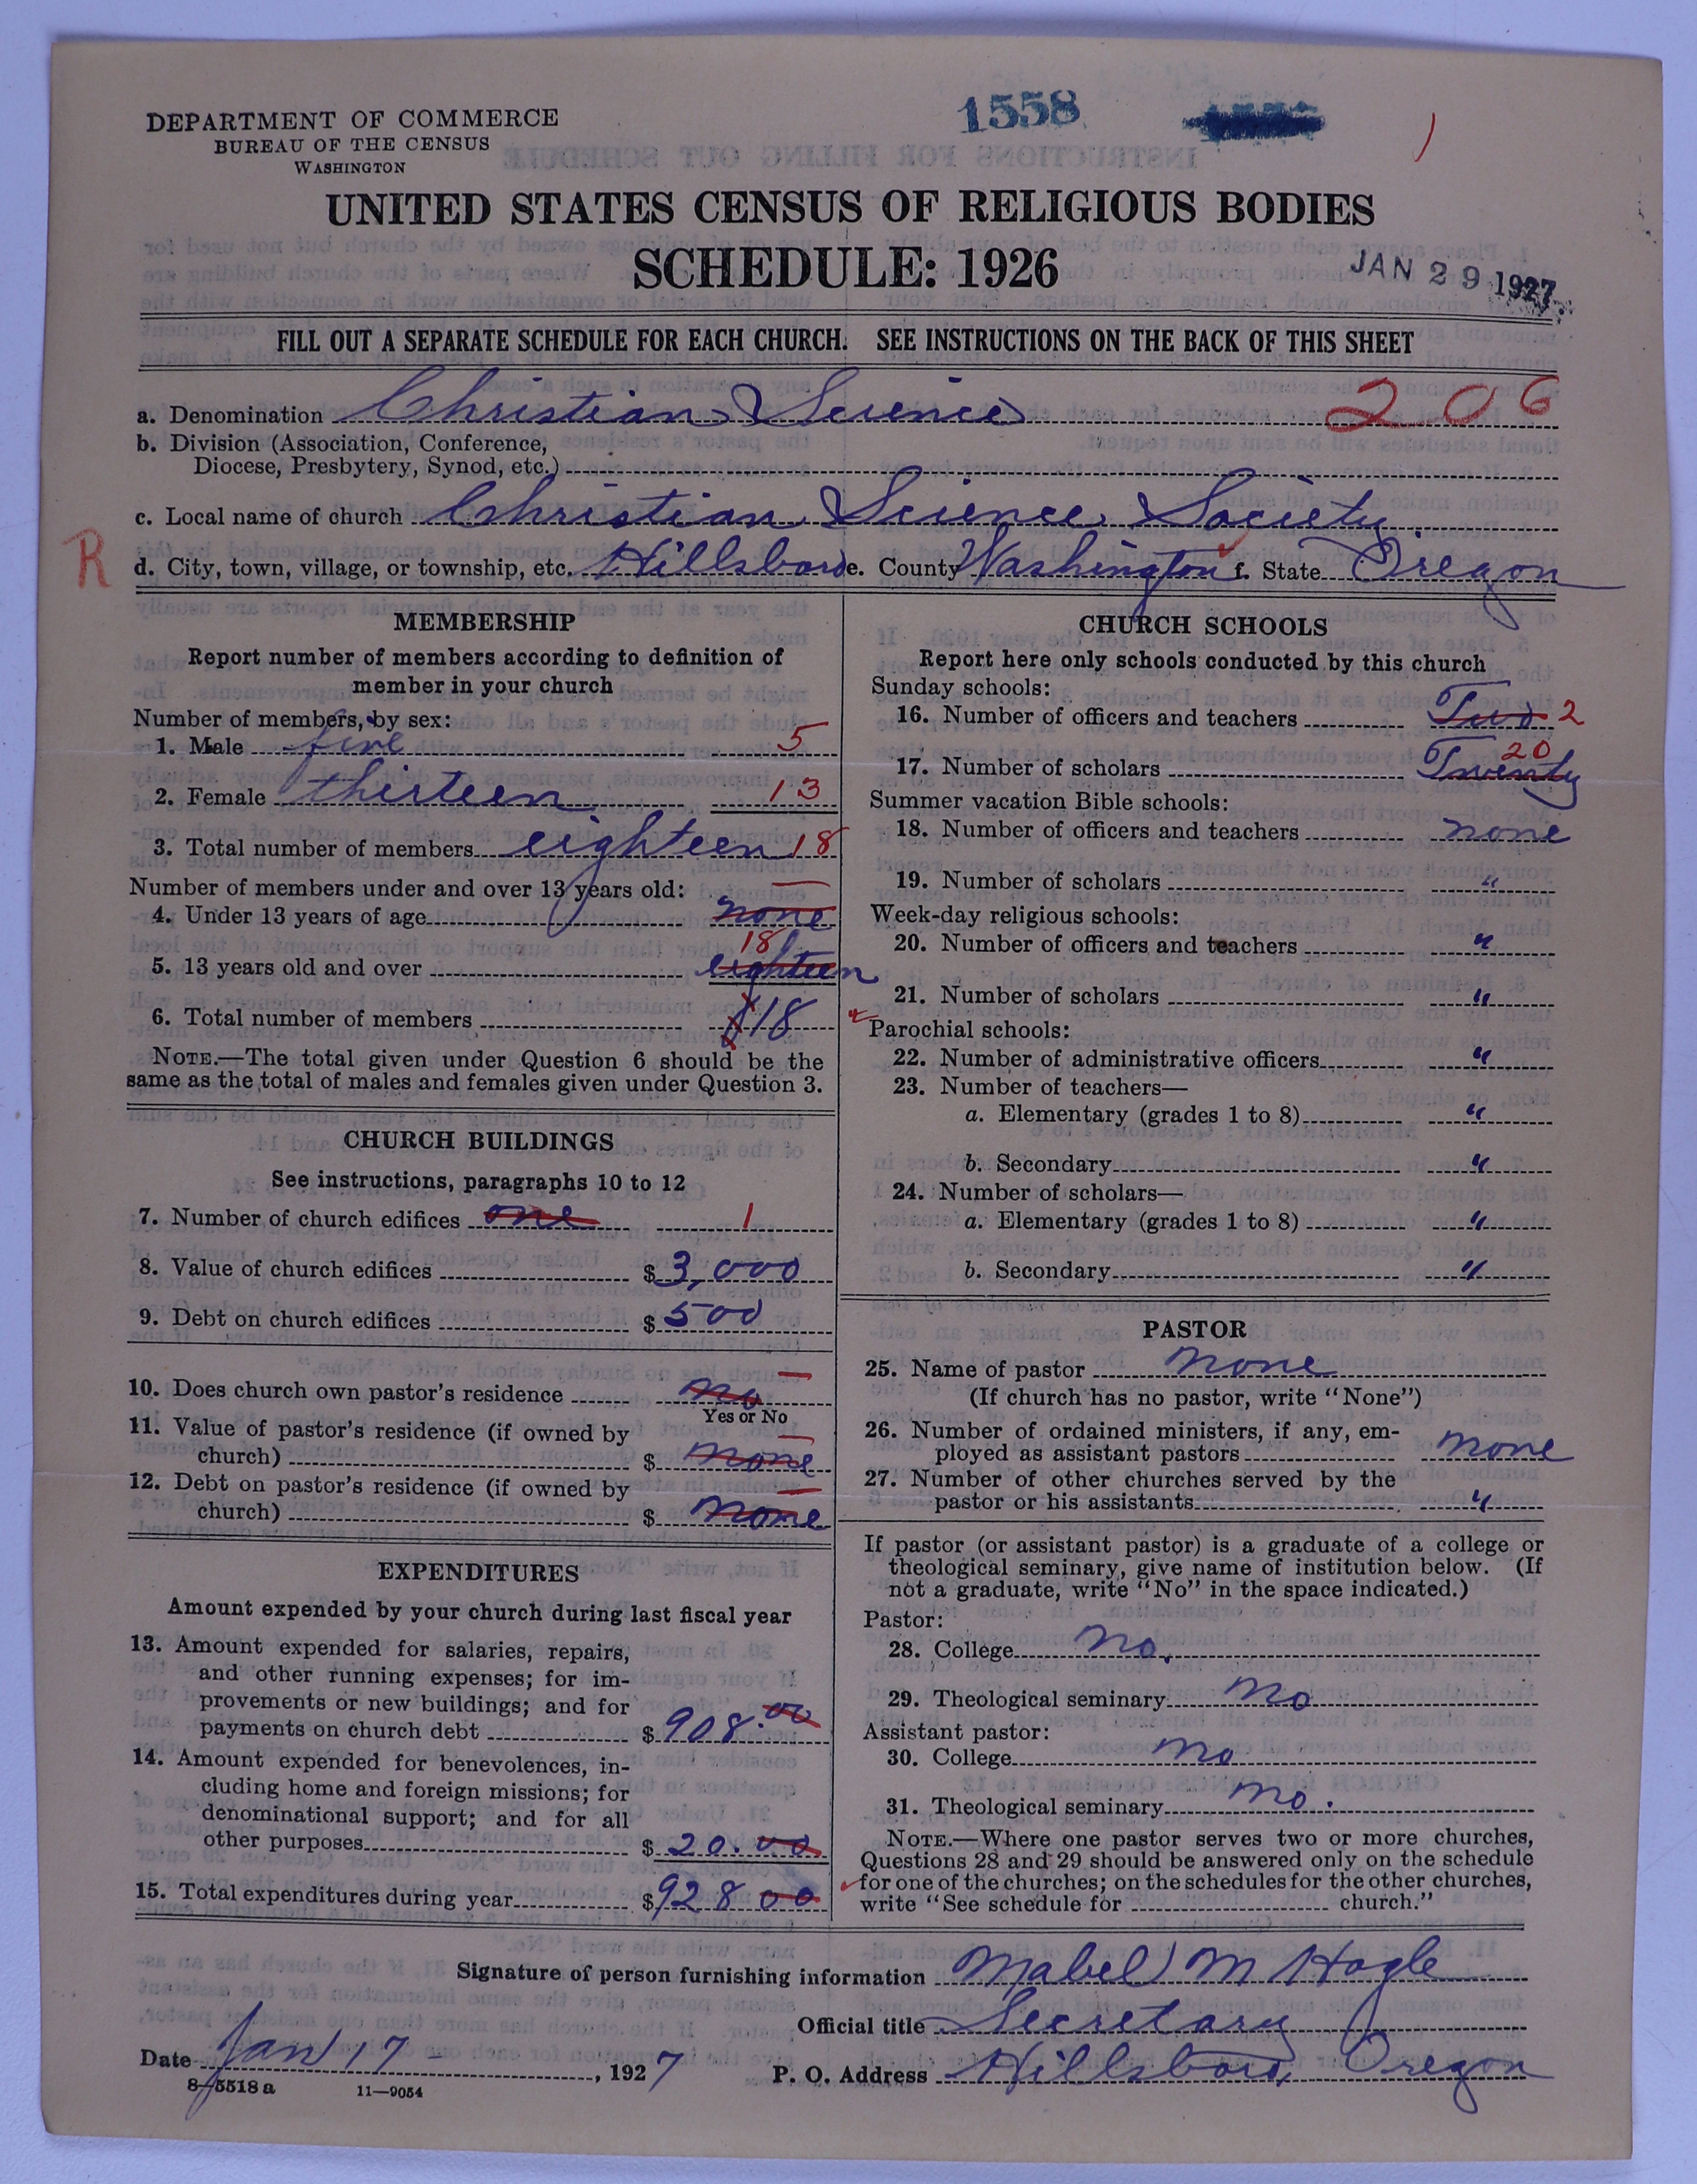 DEPARTMENT OF COMMERCE
BUREAU OF THE CENSUS
WASHINGTON
1558
UNITED STATES CENSUS OF RELIGIOUS BODIES
SCHEDULE: 1926
JAN 29 1927
FILL OUT A SEPARATE SCHEDULE FOR EACH CHURCH. SEE INSTRUCTIONS ON THE BACK OF THIS SHEET
a. Denomination Christian Science 206
b. Division (Association, Conference,
Diocese, Presbytery, Synod, etc.)
c. Local name of church Christian Science Society
R
d. City, town, village, or township, etc. Hillsboro e. County Washington f. State Oregon
MEMBERSHIP
Report number of members according to definition of
member in your church
Number of members, by sex:
1. Male five 5
2. Female thirteen 13
3. Total number of members eighteen 18
Number of members under and over 13 years old:
4. Under 13 years of age none
18
5. 13 years old and over eighteen
6. Total number of members 18
NOTE.—The total given under Question 6 should be the
same as the total of males and females given under Question 3.
CHURCH BUILDINGS
See instructions, paragraphs 10 to 12
7. Number of church edifices one 1
8. Value of church edifices $ 3,000
9. Debt on church edifices $ 500
10. Does church own pastor's residence no
Yes or No
11. Value of pastor's residence (if owned by
church) $ none
12. Debt on pastor's residence (if owned by
church) $ none
EXPENDITURES
Amount expended by your church during last fiscal year
13. Amount expended for salaries, repairs,
and other running expenses; for im-
provements or new buildings; and for
payments on church debt $ 908.00
14. Amount expended for benevolences, in-
cluding home and foreign missions; for
denominational support; and for all
other purposes $ 20.00
15. Total expenditures during year $ 928 00
CHURCH SCHOOLS
Report here only schools conducted by this church
Sunday schools:
16. Number of officers and teachers Two 2
20
17. Number of scholars Twenty
Summer vacation Bible schools:
18. Number of officers and teachers none
19. Number of scholars "
Week-day religious schools:
20. Number of officers and teachers "
21. Number of scholars "
Parochial schools:
22. Number of administrative officers "
23. Number of teachers—
a. Elementary (grades 1 to 8) "
b. Secondary "
24. Number of scholars—
a. Elementary (grades 1 to 8) "
b. Secondary "
PASTOR
25. Name of pastor none
(If church has no pastor, write "None")
26. Number of ordained ministers, if any, em-
ployed as assistant pastors none
27. Number of other churches served by the
pastor or his assistants "
If pastor (or assistant pastor) is a graduate of a college or
theological seminary, give name of institution below. (If
not a graduate, write "No" in the space indicated.)
Pastor:
28. College no.
29. Theological seminary no
Assistant pastor:
30. College no
31. Theological seminary no.
NOTE.—Where one pastor serves two or more churches,
Questions 28 and 29 should be answered only on the schedule
for one of the churches; on the schedules for the other churches,
write "See schedule for church."
Signature of person furnishing information Mabel M Hogle
Official title Secretary
Date Jan 17 - , 1927 P. O. Address Hillsboro, Oregon
8-5518 a 11—9054